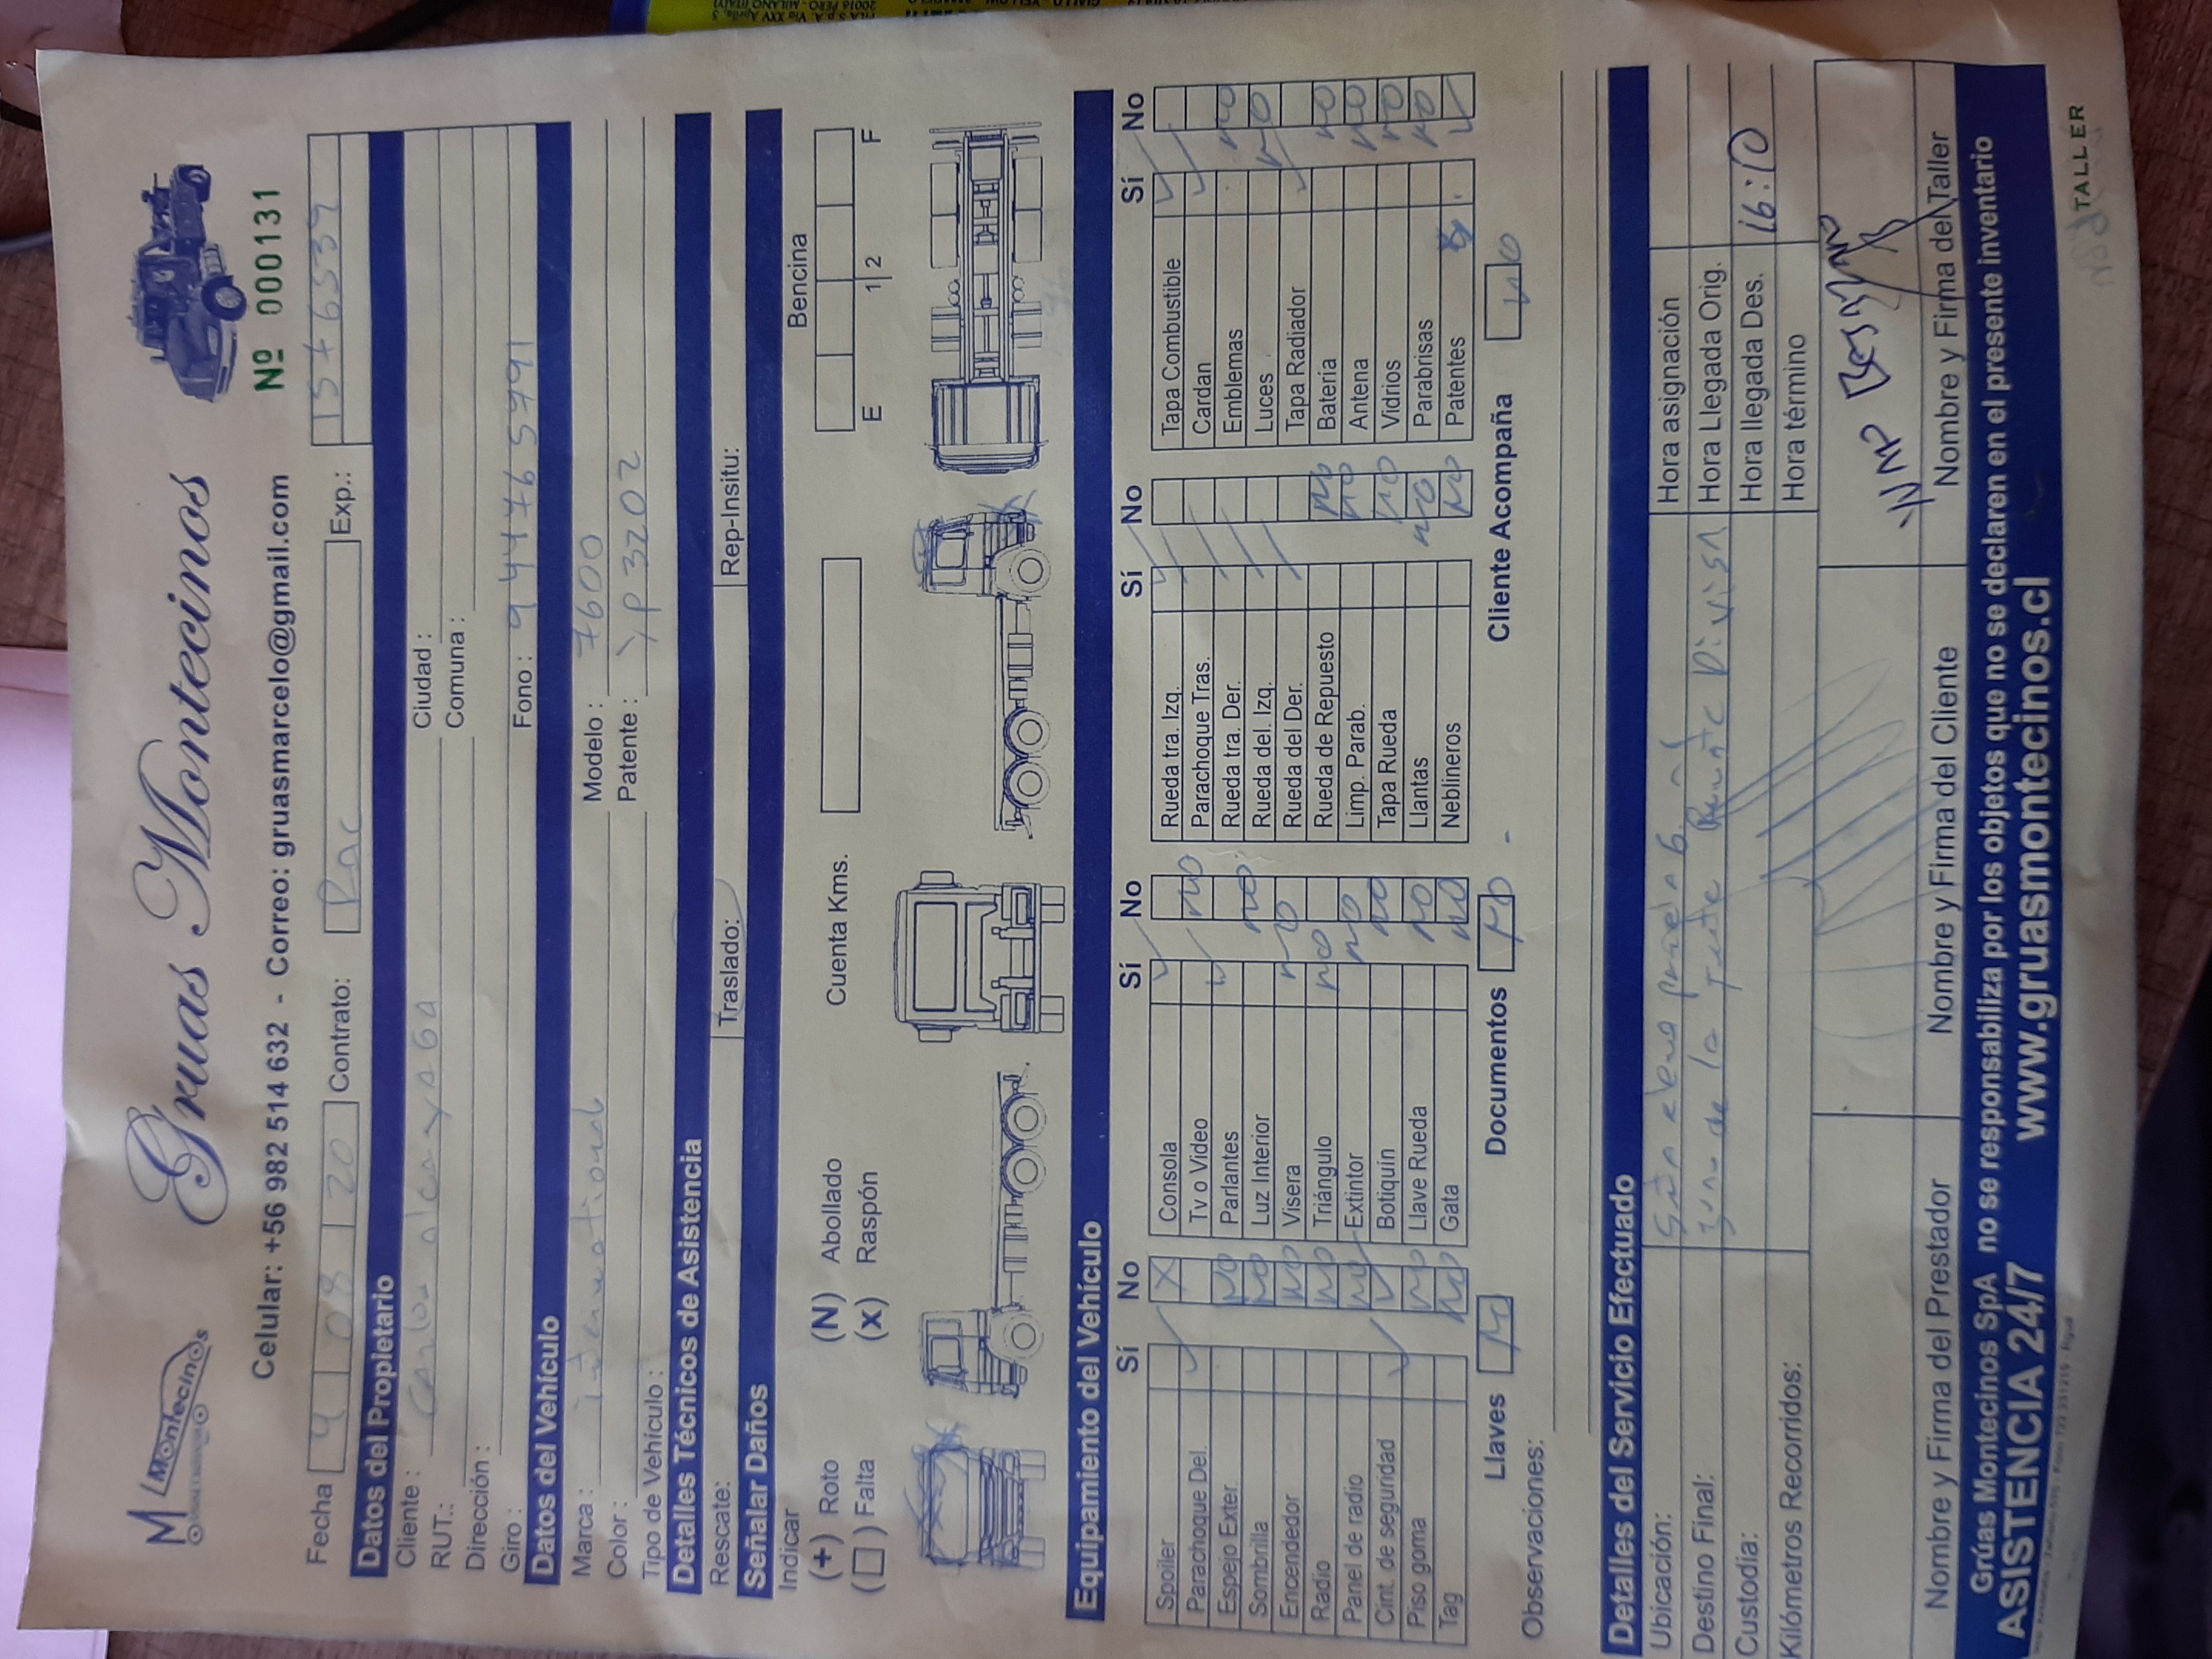 Montecinos
Gruas Montecinos
Celular: +56 982 514 632 - Correo: gruasmarcelo@gmail.com
Nº 000131
Fecha 4 08 20 Contrato: Rac Exp.: 1576539
Datos del Propietario
Cliente: Carlos
Ciudad:
RUT.:
Comuna:
Dirección:
Giro:
Fono: 9 44765791
Datos del Vehículo
Marca: international Modelo: 7600
Color: Patente: YP 3202
Tipo de Vehículo:
Detalles Técnicos de Asistencia
Rescate: Traslado: Rep-Insitu:
Señalar Daños
Indicar
(+) Roto (N) Abollado Cuenta Kms. Bencina
(□) Falta (x) Raspón E 1|2 F
Equipamiento del Vehículo
Sí No Sí No Sí No Sí No
Spoiler X Consola Rueda tra. Izq. Tapa Combustible
Parachoque Del. Tv o Video NO Parachoque Tras. Cardan
Espejo Exter. NO Parlantes Rueda tra. Der. Emblemas NO
Sombrilla NO Luz Interior NO Rueda del. Izq. Luces NO
Encendedor NO Visera NO Rueda del Der. Tapa Radiador
Radio NO Triángulo NO Rueda de Repuesto NO Batería NO
Panel de radio NO Extintor NO Limp. Parab. NO Antena NO
Cint. de seguridad Botiquín NO Tapa Rueda NO Vidrios NO
Piso goma NO Llave Rueda NO Llantas NO Parabrisas NO
Tag NO Gata NO Neblineros NO Patentes
Llaves Documentos NO Cliente Acompaña NO
Observaciones:
Detalles del Servicio Efectuado
Ubicación: Hora asignación
Destino Final: de la Hora Llegada Orig.
Custodia: Hora llegada Des. 16:10
Kilómetros Recorridos: Hora término
Nombre y Firma del Prestador Nombre y Firma del Cliente Nombre y Firma del Taller
Grúas Montecinos SpA no se responsabiliza por los objetos que no se declaren en el presente inventario
ASISTENCIA 24/7 www.gruasmontecinos.cl
TALLER